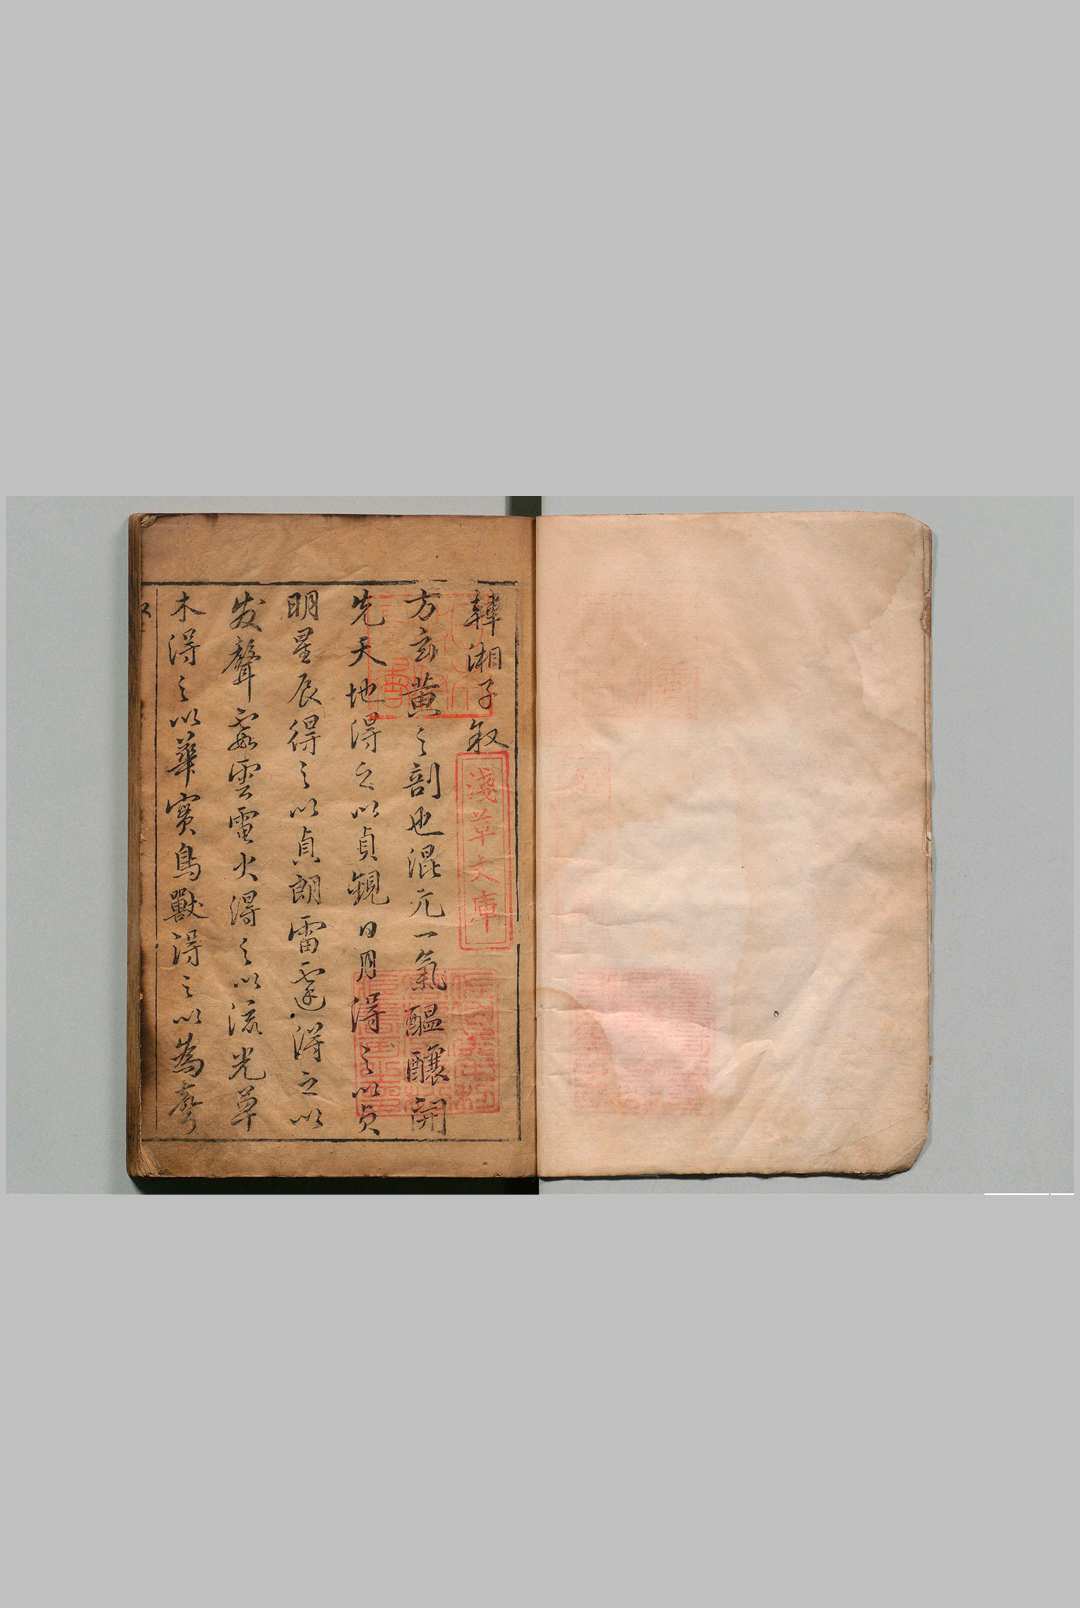 韓湘子叙
方玄黄之剖也混元一氣醖釀開
先天地得之以貞觀日月得之以貞
明星辰得之以貞朗雷霆得之以
发聲霞雲電火得之以流光草
木得之以華實鳥獸得之以為
淺草文庫